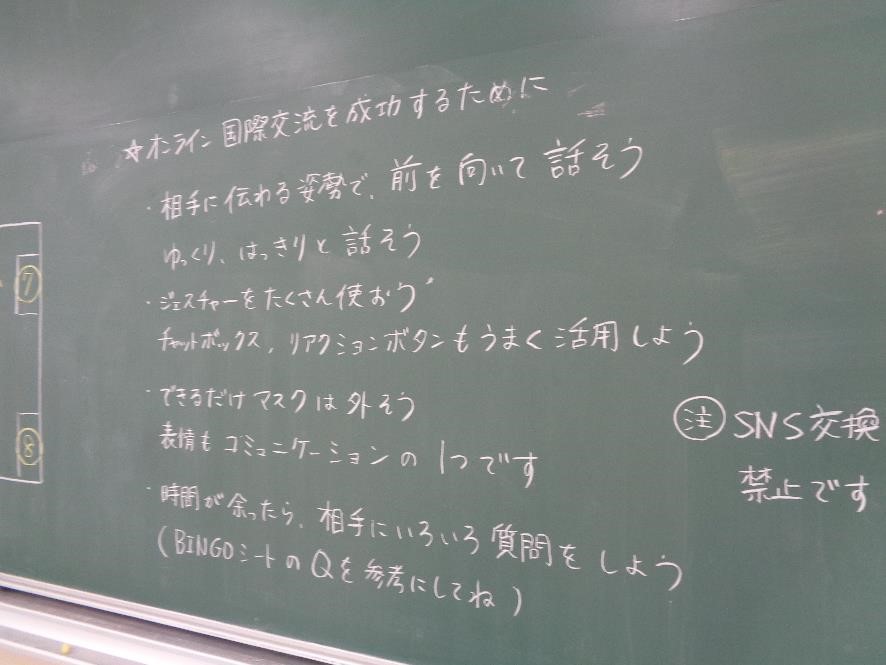 ☆オンライン国際交流を成功するために
・相手に伝わる姿勢で、前を向いて話そう
ゆっくり、はっきりと話そう
・ジェスチャーをたくさん使おう
チャットボックス、リアクションボタンもうまく活用しよう
・できるだけマスクは外そう
表情もコミュニケーションの1つです
・時間が余ったら、相手にいろいろ質問をしよう
(BINGOシートのQを参考にしてね)
㊟SNS交換
禁止です
⑦
⑧